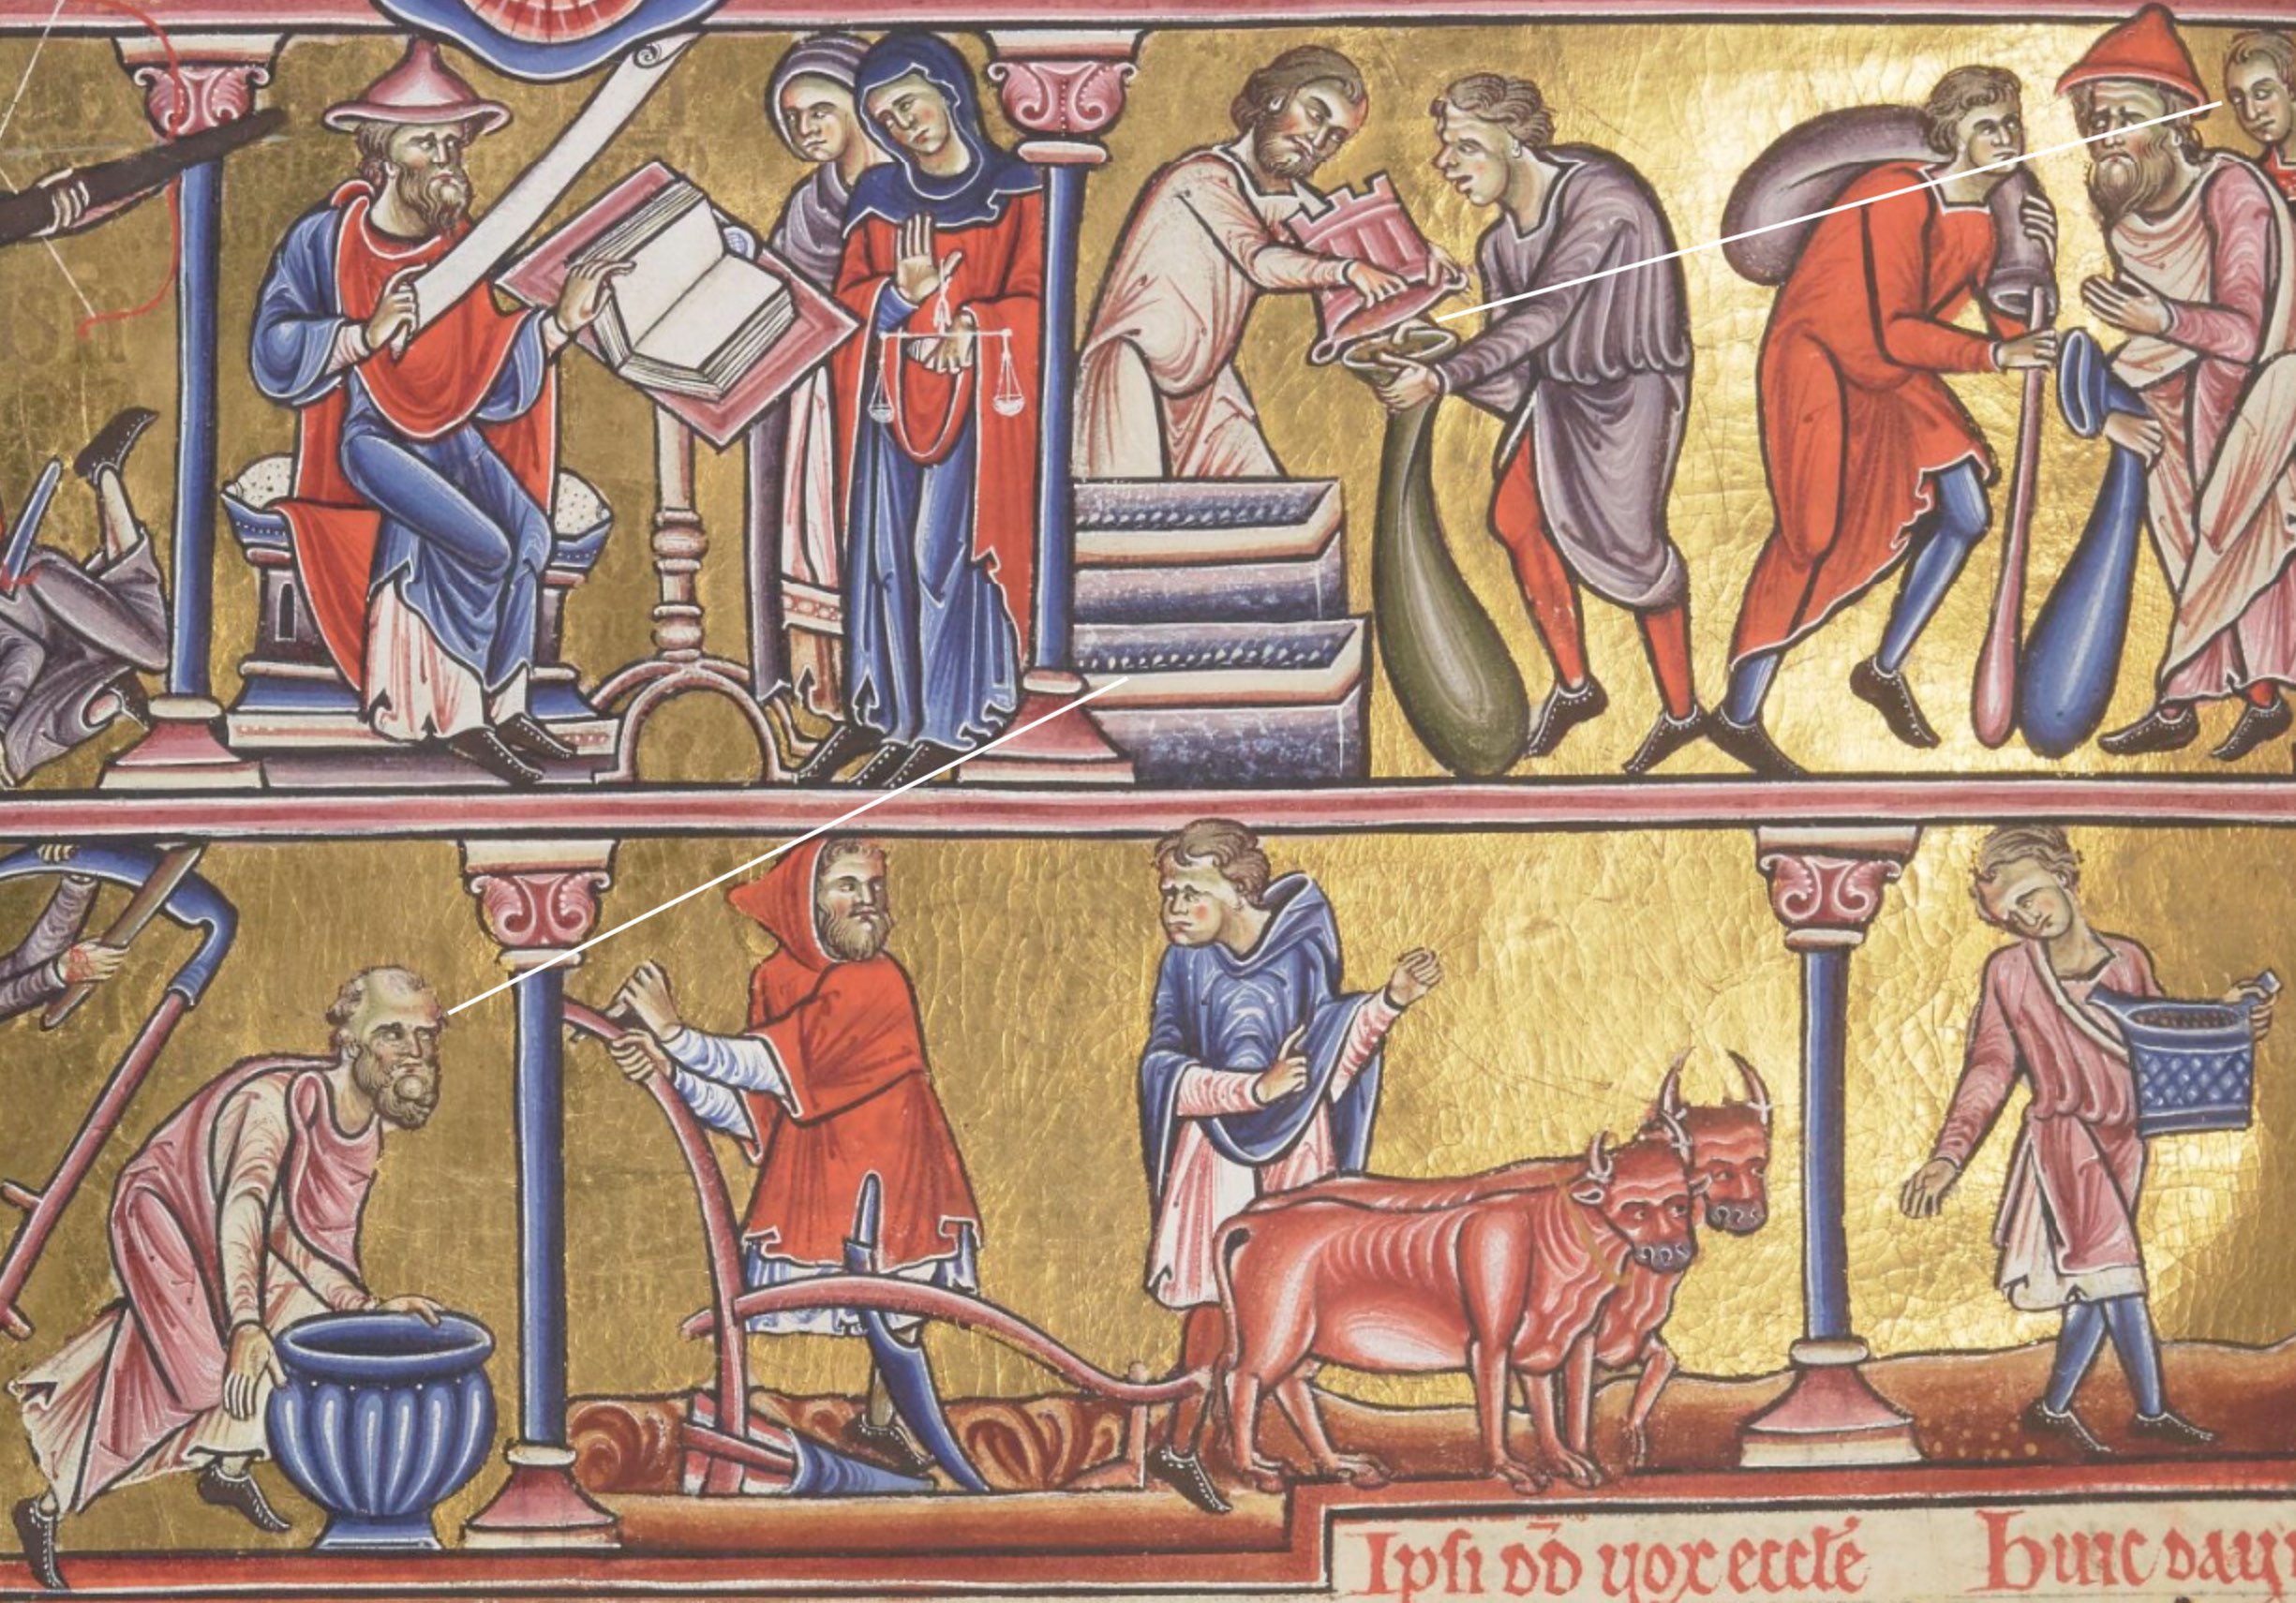 Ipsi dd̄ vox eccłe Huic dauı